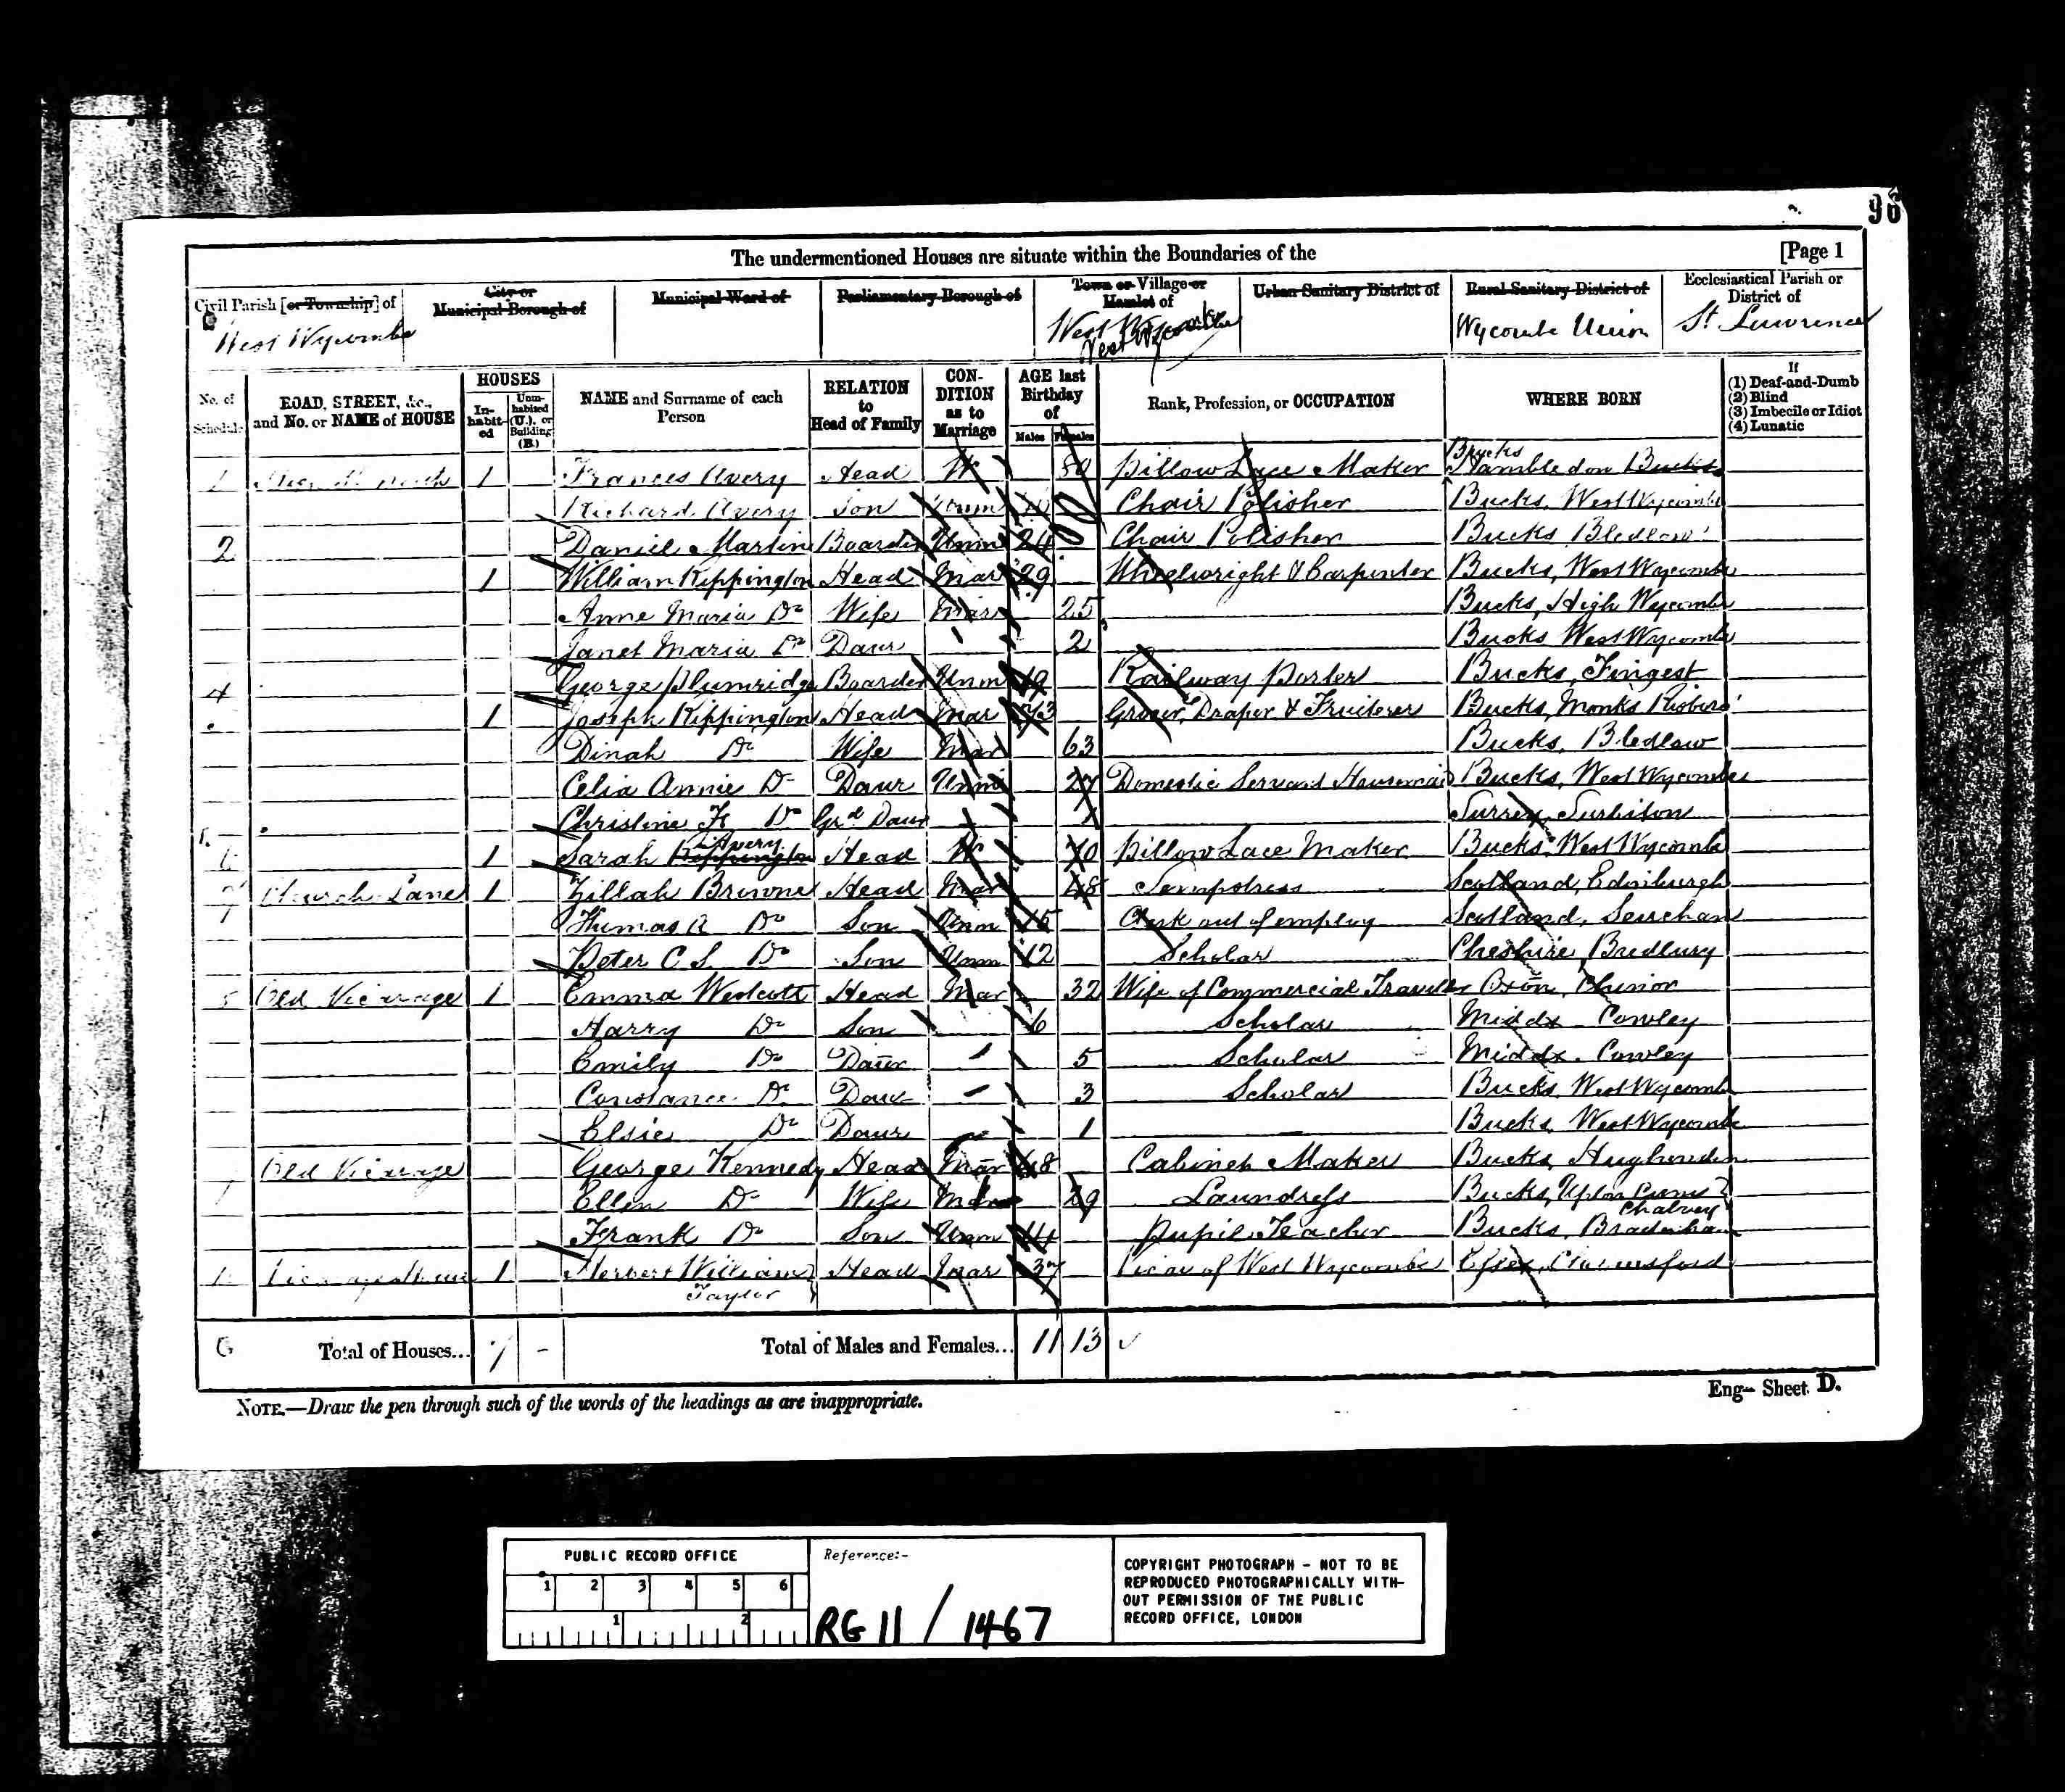 96
The undermentioned Houses are situate within the Boundaries of the [Page 1
Civil Parish [or Township] of West Wycombe
City or Municipal Borough of
Municipal Ward of
Parliamentary Borough of
Town or Village or Hamlet of West Wycombe
Urban Sanitary District of
Rural Sanitary District of Wycombe Union
Ecclesiastical Parish or District of St Lawrence
No. of Schedule
ROAD, STREET, &c., and No. or NAME of HOUSE
HOUSES
In-habit-ed
Unin-habited (U.), or Building (B.)
NAME and Surname of each Person
RELATION to Head of Family
CON-DITION as to Marriage
AGE last Birthday of
Males Females
Rank, Profession, or OCCUPATION
WHERE BORN
If
(1) Deaf-and-Dumb
(2) Blind
(3) Imbecile or Idiot
(4) Lunatic
1 1 Frances Avery Head W Pillow Lace Maker Bucks Hambledon Bucks
Richard Avery Son Unm Chair Polisher Bucks, West Wycombe
2 Daniel Martin Boarder Unm 24 Chair Polisher Bucks Bledlow
1 William Rippington Head Mar 29 Wheelwright & Carpenter Bucks, West Wycombe
Anne Maria Do Wife Mar 25 Bucks, High Wycombe
Janet Maria Do Daur 2 Bucks West Wycombe
4 George Plumridge Boarder Unm 19 Railway Porter Bucks, Fingest
1 Joseph Rippington Head Mar Grocer, Draper & Fruiterer Bucks, Monks Risboro'
Dinah Do Wife Mar 63 Bucks, Bledlow
Celia Annie Do Daur Unm 27 Domestic Servant Housemaid Bucks, West Wycombe
Christine Do Grd Daur 1 Surrey, Surbiton
1 Sarah Rippington Avery Head W 70 Pillow Lace Maker Bucks West Wycombe
Church Lane 1 Zillah Browne Head Mar 48 Sempstress Scotland, Edinburgh
Thomas Do Son Unm 15 Clerk out of employ Scotland,
Peter C. S. Do Son Unm 12 Scholar Cheshire, Bredbury
Old Vicarage 1 Emma Westcott Head Mar 32 Wife of Commercial Traveller Oxon, Chinor
Harry Do Son 6 Scholar Middx Cowley
Emily Do Daur 5 Scholar Middx. Cowley
Constance Do Daur 3 Scholar Bucks, West Wycombe
Elsie Do Daur 1 Bucks, West Wycombe
Old Vicarage George Kennedy Head Mar 48 Cabinet Maker Bucks, Hughenden
Ellen Do Wife Mar Laundress Bucks, Upton Chalvey
Frank Do Son Unm 14 Pupil Teacher Bucks, Bradenham
1 Herbert William Taylor Head Mar 37 Vicar of West Wycombe Essex, Chelmsford
Total of Houses... 7 -
Total of Males and Females... 11 13
NOTE.—Draw the pen through such of the words of the headings as are inappropriate.
Eng— Sheet D.
PUBLIC RECORD OFFICE
1 2 3 4 5 6
1 2
Reference:-
RG 11 / 1467
COPYRIGHT PHOTOGRAPH - NOT TO BE
REPRODUCED PHOTOGRAPHICALLY WITH-
OUT PERMISSION OF THE PUBLIC
RECORD OFFICE, LONDON